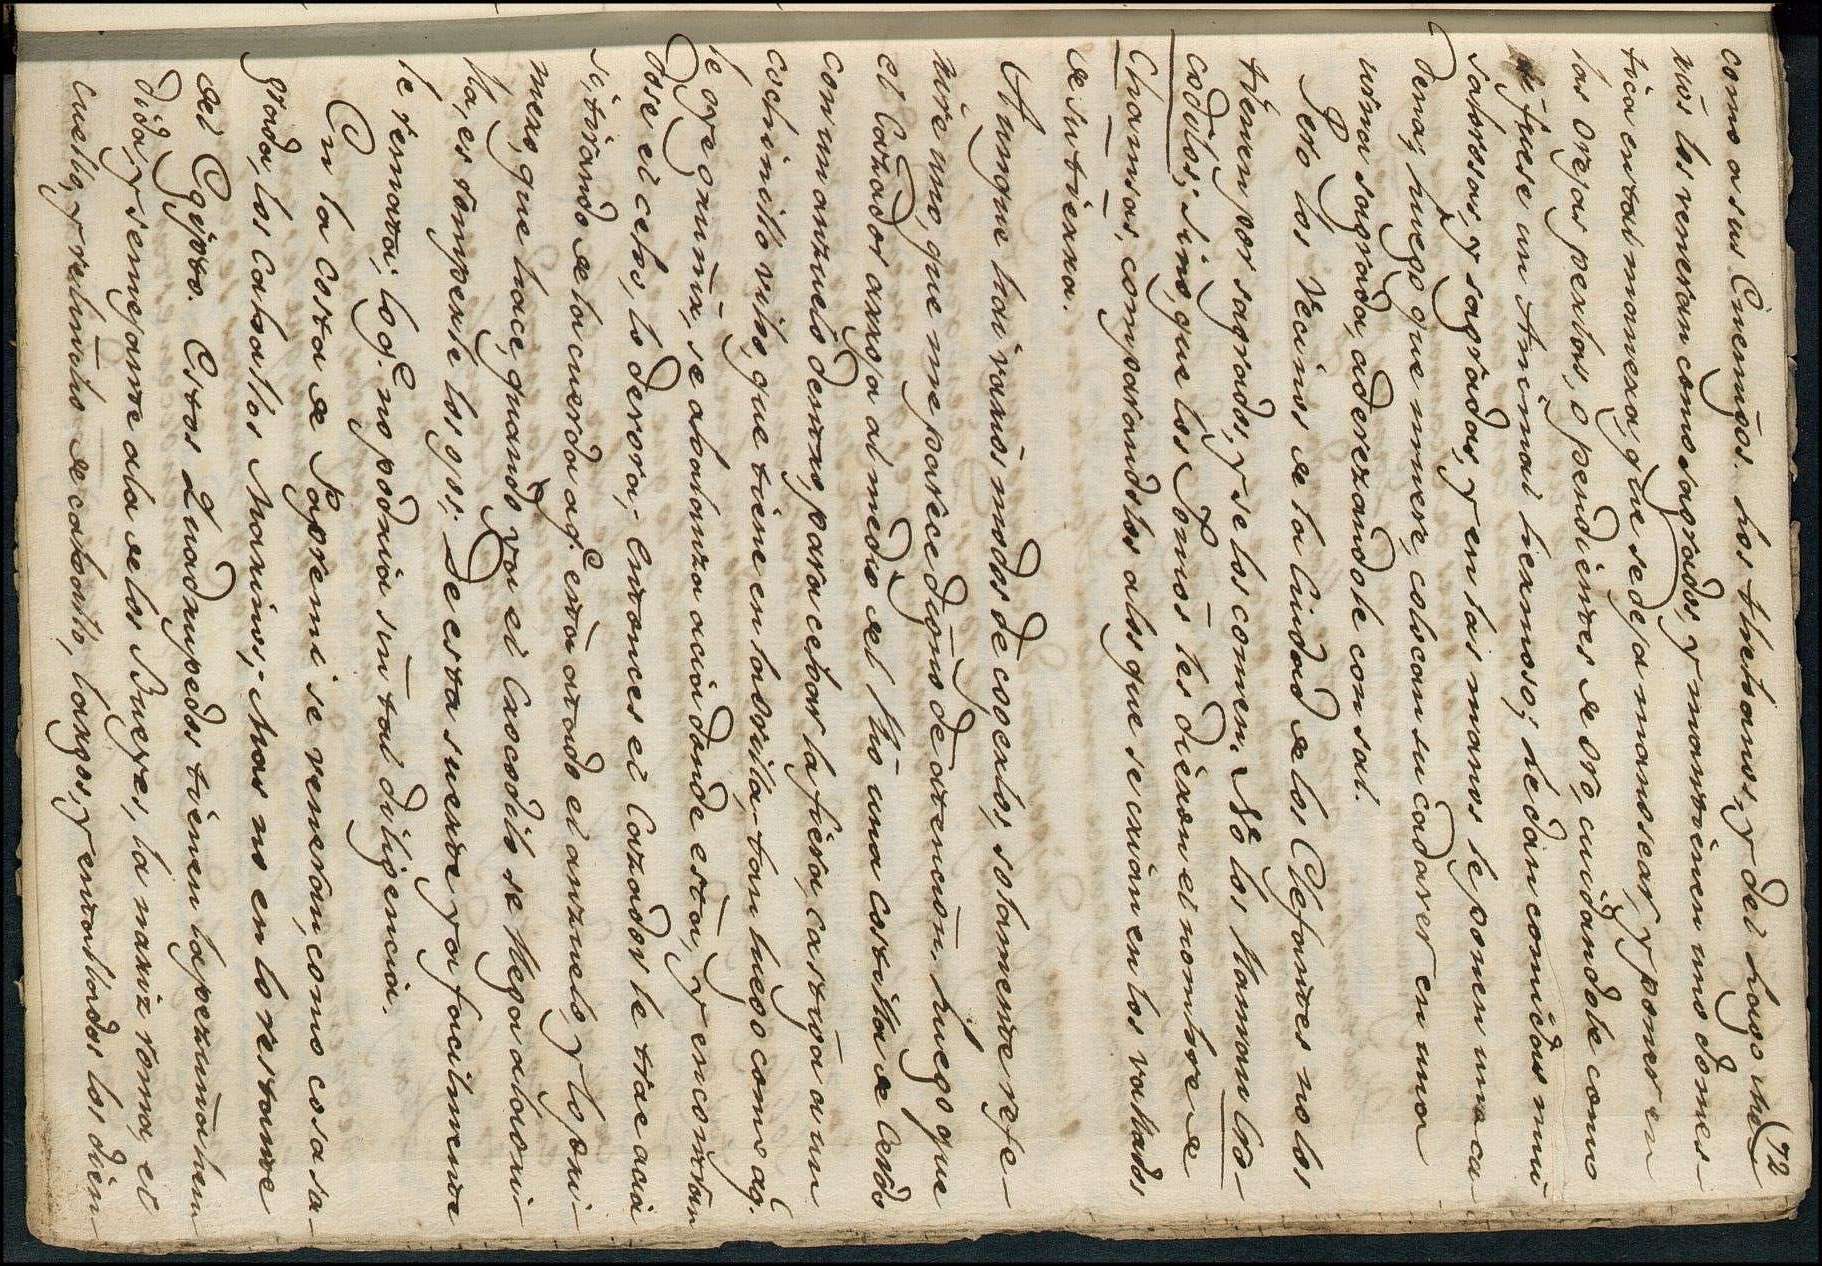 72
como a sus Enemigos. Los thebanos, y del Lago Me
rios los veneran como sagrados, y mantienen uno domes-
tica en tal manera, que se deja manosear, y poner en
las orejas perlas, o pendientes de oro, cuidandole como
si fuese un Animal hermoso; le dan comidas mui
sabrosas, y sagradas, y en las manos le ponen una ca
dena; Luego que muere, colocan su cadaver en una
urna sagrada, aderezandole con sal.
Pero los Vecinos de la Ciudad de los Elefantes no los
tienen por sagrados, y se los comen. No los llaman Cro-
codilos; sino, que los Jonios les dieron el nombre de
Chamsas, comparandolos a los que se crian en los vallados
de su tierra.
Aunque hai varios modos de cogerlos, solamente refe-
rire uno, que me parece digno de atencion. Luego que
el Cazador arroja al medio del Rio una costilla de Cerdo
con un anzuelo dentro, para cebar la fiera, castiga a un
cochinillo vivo, que tiene en la orilla; tan luego como aq.
le oye gruñir, se abalanza acia donde está, y encontran
dose el cebo, lo devora; Entonces el Cazador le trae acia
si, tirando de la cuerda aq. está atado el anzuelo, y lo pri-
mero, que hace, quando va el Crocodilo se llega a la ori-
lla, es romperle los ojos; De esta suerte ya facilmente
le remata; lo q. no podria sin tal diligencia.
En la Costa de Papremi se veneran, como cosa sa-
grada, los Caballos Marinos; Mas no en lo restante
del Egipto. Estos Quadrupedos tienen la pezuña hen
dida, y semejante a la de los Bueyes, la nariz roma, el
cuello, y relincho de caballo, largos, y entallados los dien-